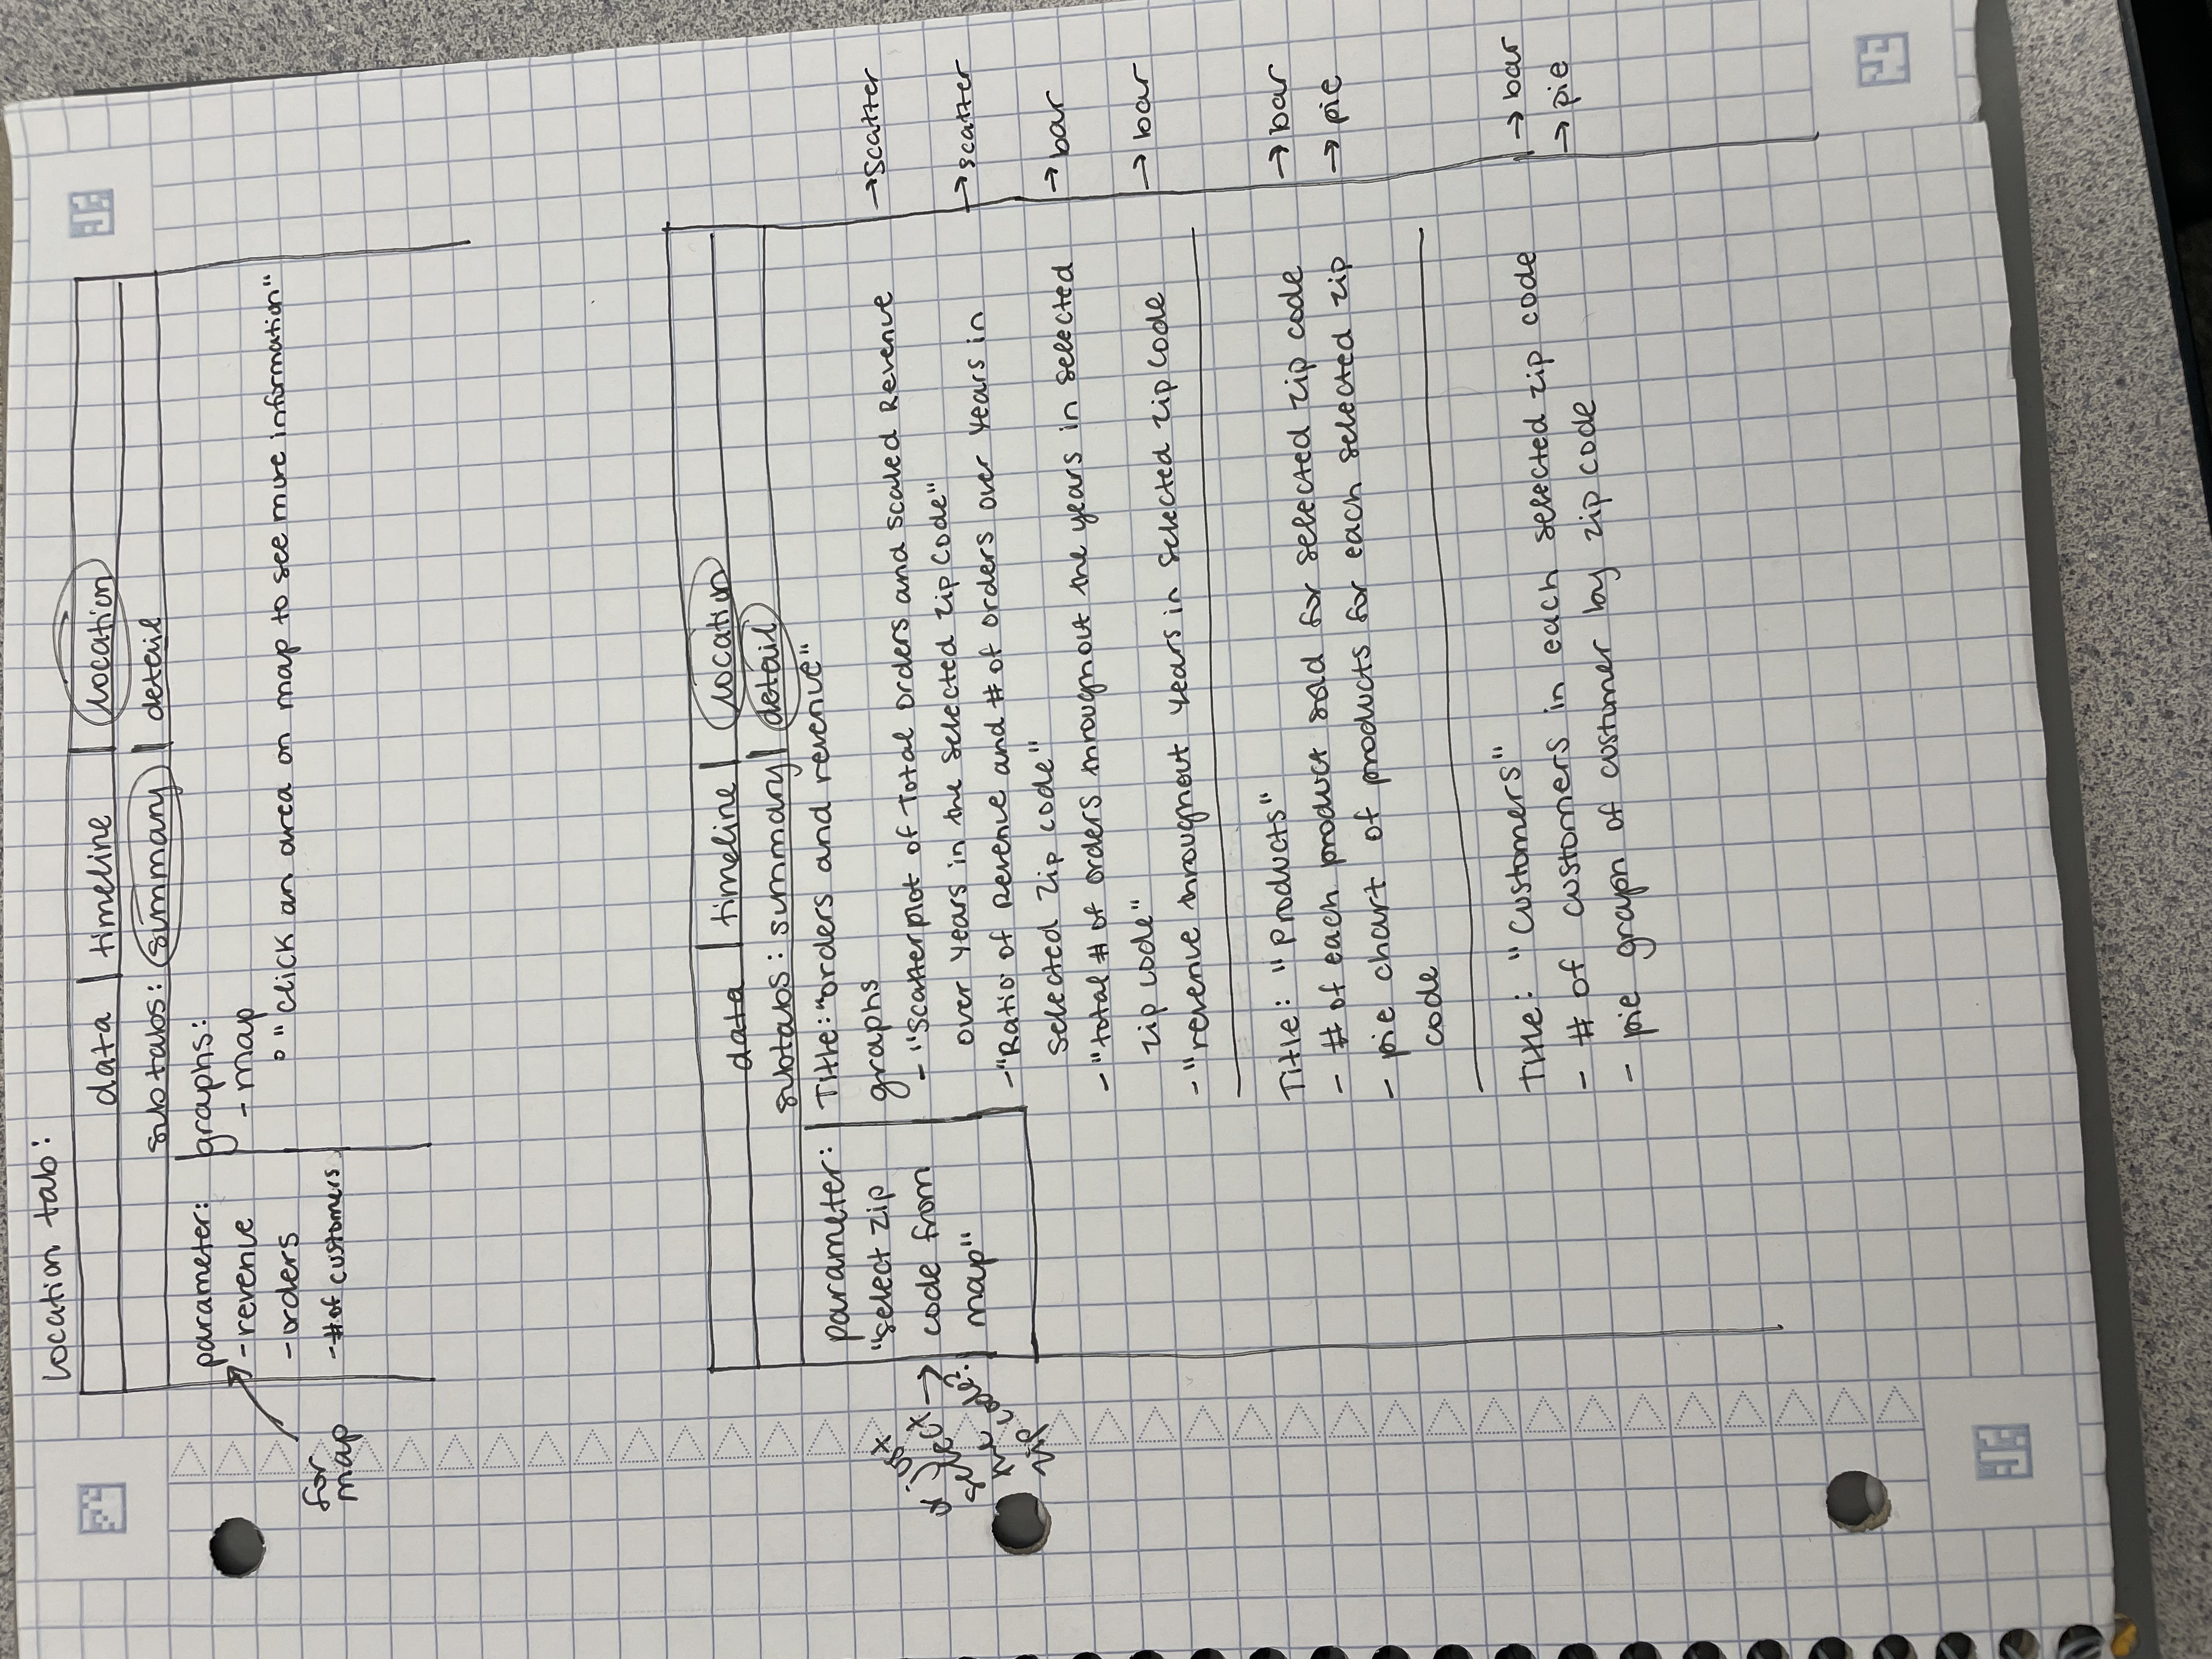 location tab:
data | timeline | location
subtabs: summary | detail
parameter:
- revenue
- orders
- # of customers
for
map
graphs:
- map
° "click an area on map to see more information"
data | timeline | location
subtabs: summary | detail
parameter:
"select zip
code from
map"
or just
select
the
zip code?
Title: "orders and revenue"
graphs
- "Scatterplot of Total Orders and Scaled Revenue
over years in the selected zip code"
- "Ratio of Revenue and # of orders over years in
selected zip code"
- "total # of orders throughout the years in selected
zip code"
- "revenue throughout years in selected zip code
→ scatter
→ scatter
→ bar
→ bar
Title: "Products"
- # of each product sold for selected zip code
- pie chart of products for each selected zip
code
→ bar
→ pie
Title: "Customers"
- # of customers in each selected zip code
- pie graph of customer by zip code
→ bar
→ pie